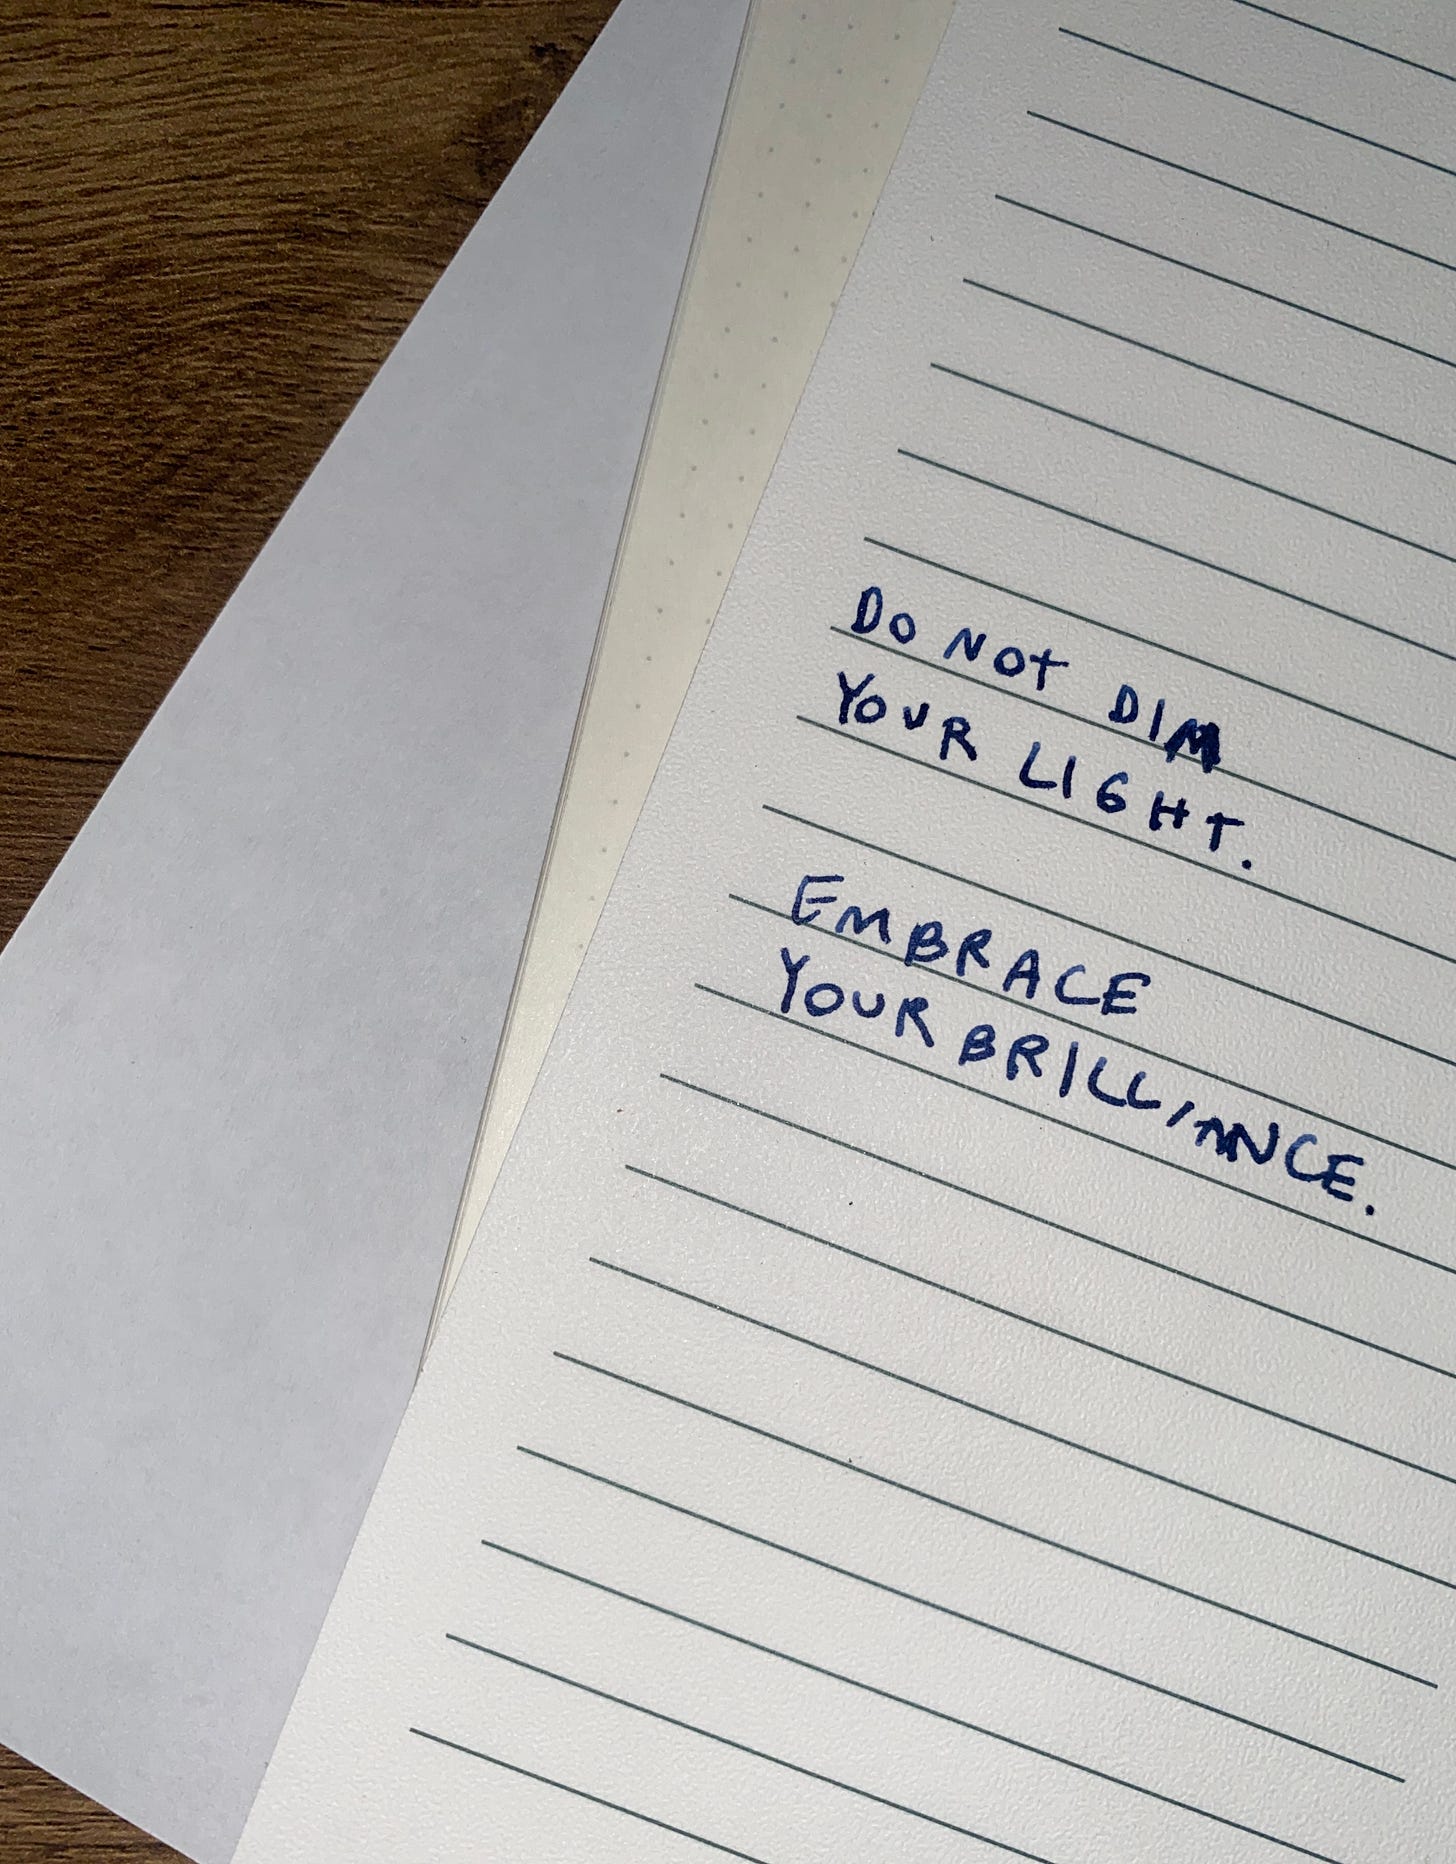 DO NOT DIM
YOUR LIGHT.
EMBRACE
YOUR BRILLIANCE.